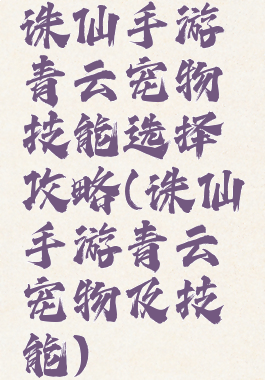 诛仙手游
青云宠物
技能选择
攻略(诛仙
手游青云
宠物及技
能)